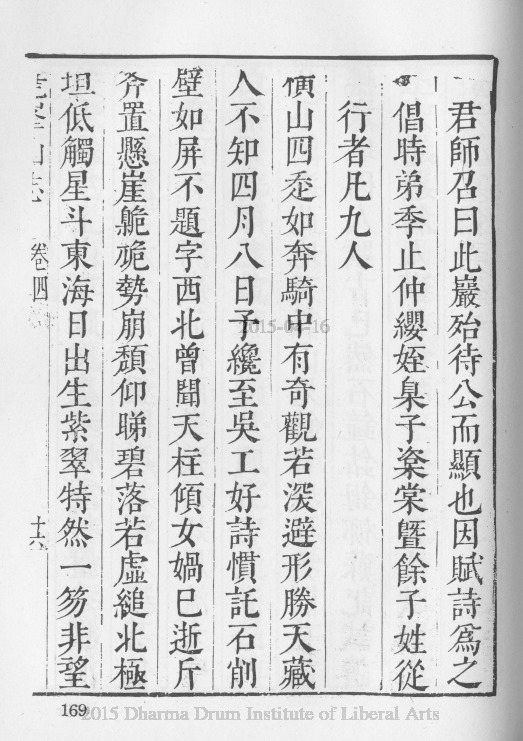 君師召曰此巖殆待公而顯也因賦詩爲之
倡時弟季止仲纓姪臯子楶棠曁餘子姓從
行者凡九人
橫山四柰如奔騎中有奇觀若深避形勝天藏
人不知四月八日予纔至吳工好詩慣託石削
壁如屏不題字西北曾聞天柱傾女媧已逝斤
斧置懸崖臲卼勢崩頹仰睇碧落若虛縋北極
坦低觸星斗東海日出生紫翠特然一笏非望
山志 卷四 十六
169
2015-04-16
2015 Dharma Drum Institute of Liberal Arts